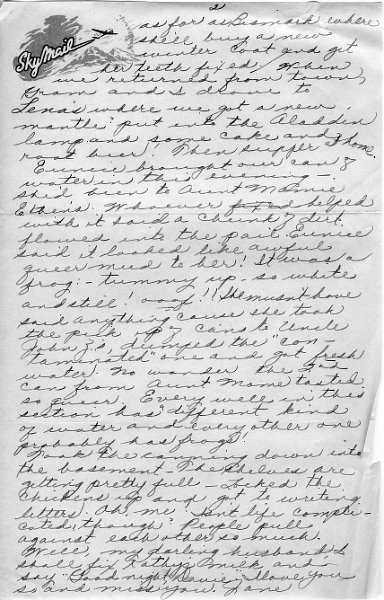 2
Sky Mail
as far as Bismark where
she'll buy a new
winter coat and get
her teeth fixed. When
we returned from town,
Gram and I drove to
Lena's where we got a new
"mantle" put into the Aladdin
lamp and some cake and
root beer! Then supper & home.
Eunice brought our can of
water in this evening -
she'd been to Aunt Mamie
Whoever helped
with it said a chunk of dirt
flowed into the pail. Eunice
said it looked like awful
queer mud to her! It was a
frog - tummy up - so white
and still! ooof!! She mustn't have
said anything cause she took
the pick up & cans to Uncle
John's, dumped the "con-
taminated" one and got fresh
water. No wonder the 2nd
can from Aunt Mame tasted
so queer. Every well in this
section has different kind
of water and every other one
probably has frogs!
Took the canning down into
the basement. The shelves are
getting pretty full - locked the
chickens up and got to writing
letters. Oh me. Isn't life compli-
cated, though. People pull
against each other so much.
Well, my darling husband I
shall fix Kathy's milk and
say "Good night Davie". I love you
so and miss you. Jane